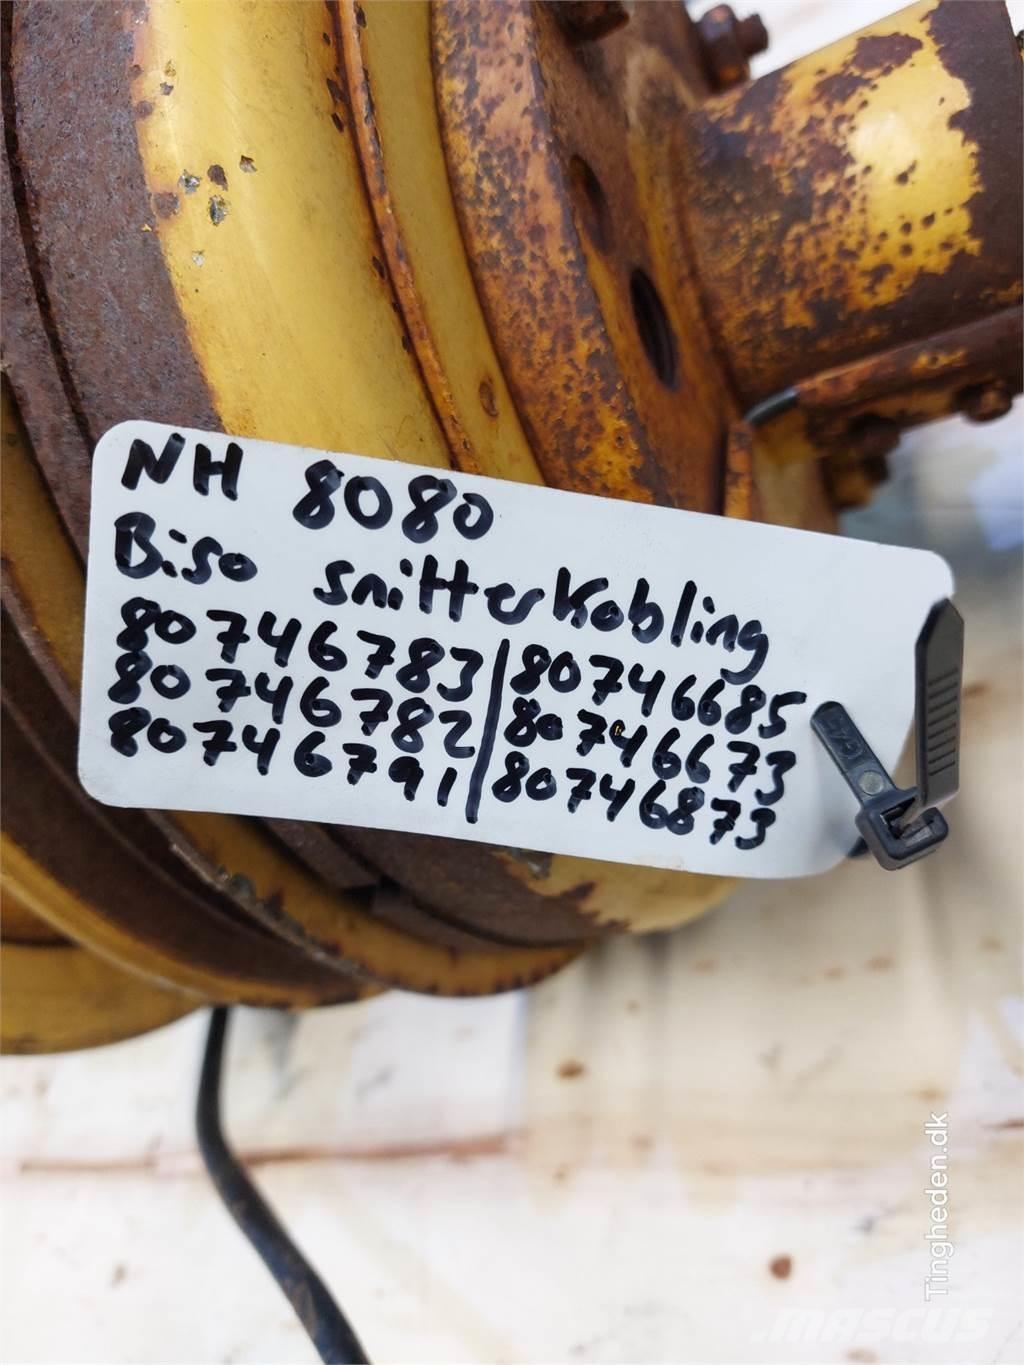 NH 8080
Biso snitterkobling
80746783|80746685
80746782|80746673
80746791|80746873
Tingheden.dk
MASCUS